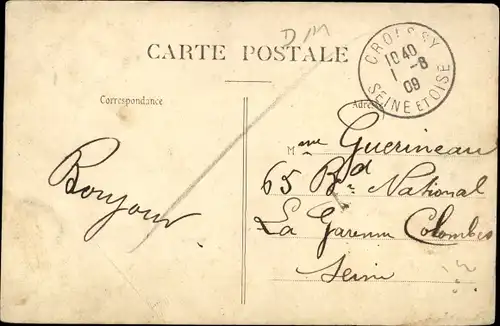 DM
CARTE POSTALE
CROISSY
10 40
1 -8
09
SEINE ET OISE
Correspondance
Adresse
Bonjour
Mme Guerineau
65 Bd National
La Garenne Colombes
Seine